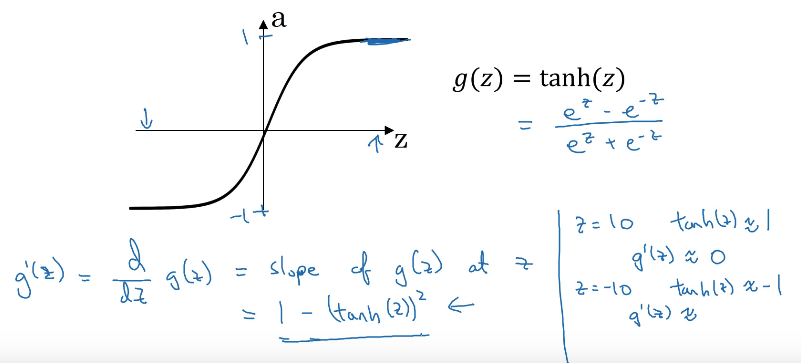 a
1
z
-1
g(z) = tanh(z)
= e^z - e^-z / e^z + e^-z
g'(z) = d/dz g(z) = slope of g(z) at z
= 1 - (tanh(z))^2 ←
z = 10 tanh(z) ≈ 1
g'(z) ≈ 0
z = -10 tanh(z) ≈ -1
g'(z) ≈